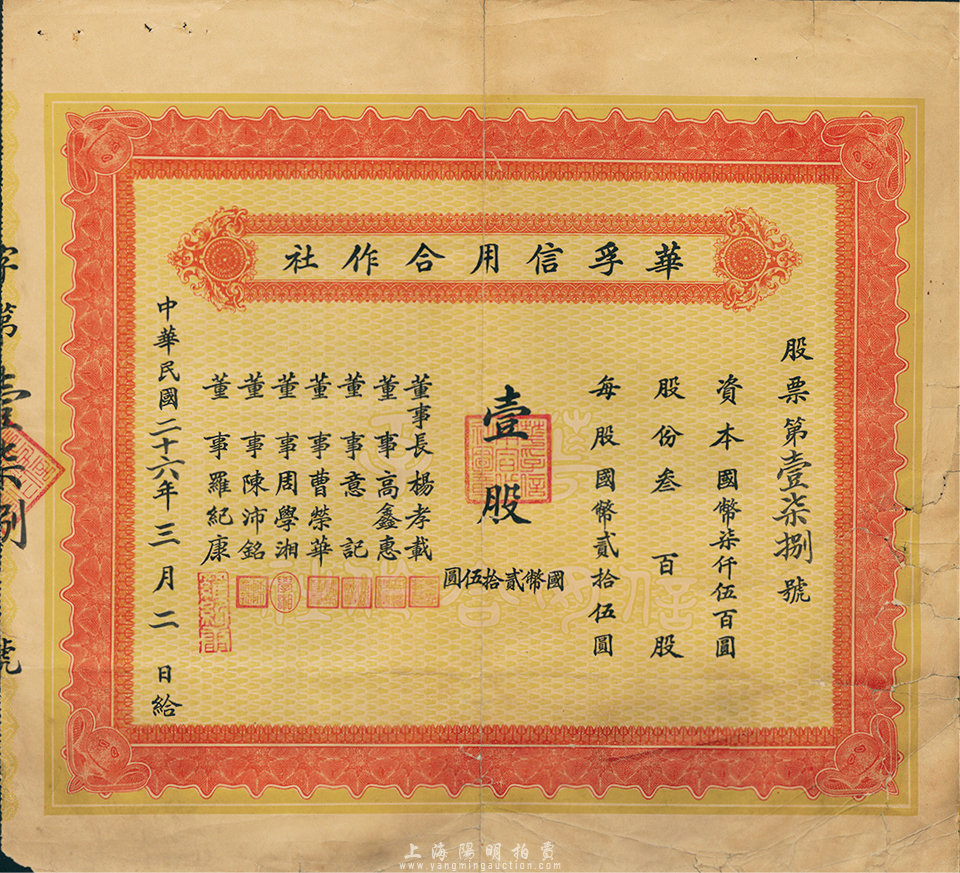 華孚信用合作社
股票第壹柒捌號
資本國幣柒仟伍百圓
股份叁百股
每股國幣貳拾伍圓
壹股
國幣貳拾伍圓
董事長楊孝載
董事高鑫惠
董事意記
董事曹榮華
董事周學湘
董事陳沛銘
董事羅紀康
中華民國二十六年三月二日給
字第壹柒捌號
上海陽明拍賣
www.yangmingauction.com